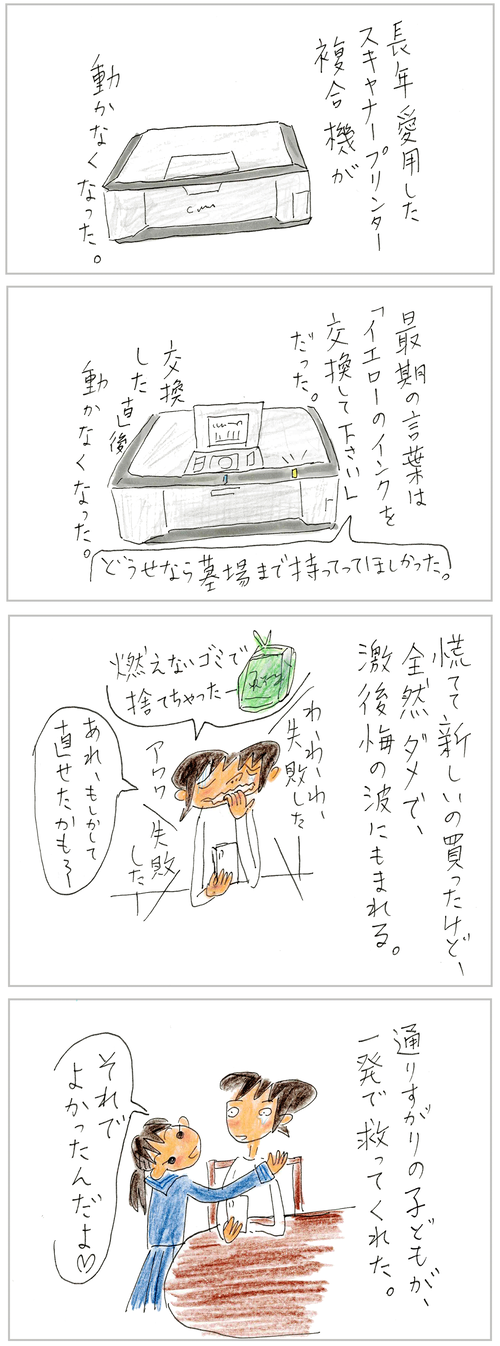 長年愛用した
スキャナープリンター
複合機が
動かなくなった。
最期の言葉は
「イエローのインクを
交換して下さい」
だった。
交換
した直後
動かなくなった。
どうせなら墓場まで持ってってほしかった。
慌てて新しいの買ったけど、
全然ダメで、
激後悔の波にもまれる。
燃えないゴミで
捨てちゃったー
わ、わ、わ、わ、
失敗した
アワワ
失敗
した
あれ、もしかして
直せたかも〜
通りすがりの子どもが、
一発で救ってくれた。
それで
よかったんだよ♡